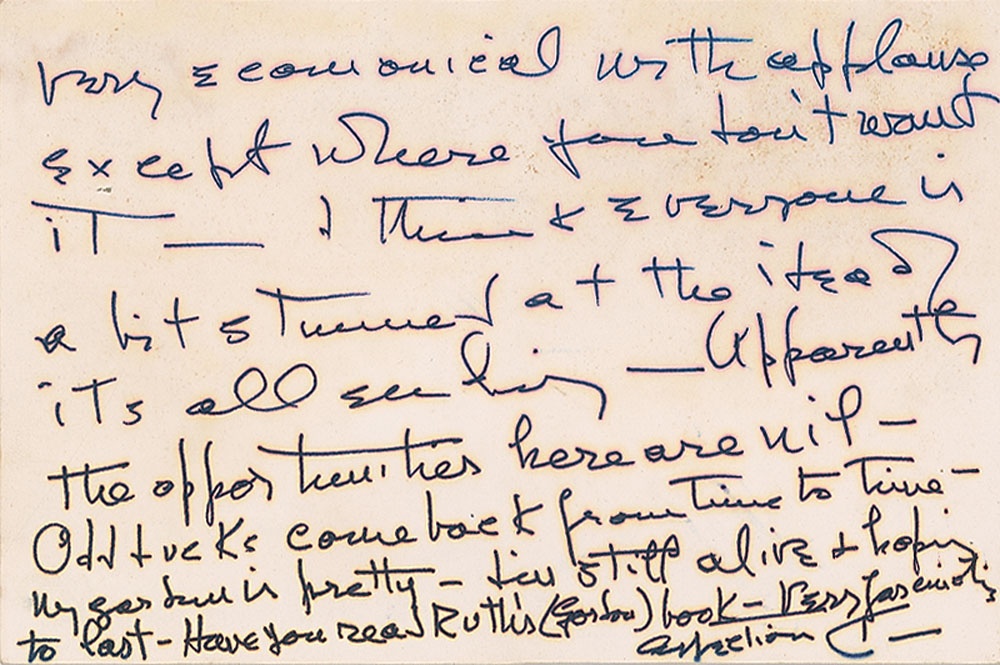 very economical with applause
except where you don't want
it — I think everyone is
a bit stunned at the idea of
its all ending — Apparently
the opportunities here are nil –
Odd ducks come back from time to time –
My garden is pretty – I'm still alive & hoping
to last – Have you read Ruth's (Gordon) book – Very fascinating
affection